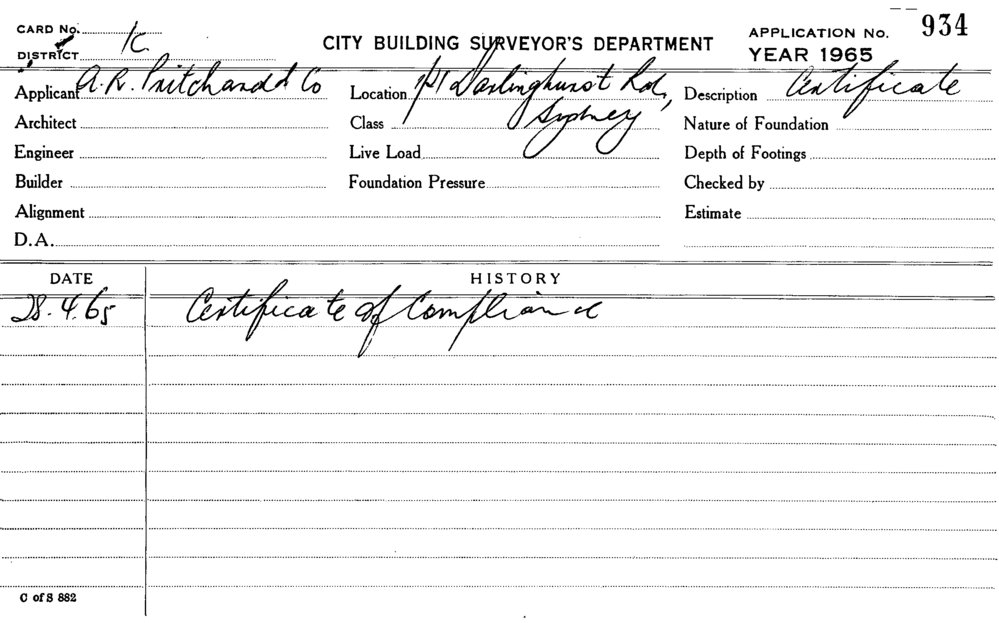 CARD No.
934
DISTRICT
K.
CITY BUILDING SURVEYOR'S DEPARTMENT
APPLICATION No.
YEAR 1965
Applicant A. R. Pritchard & Co
Location Darlinghurst Rd,
Sydney
Description Certificate
Architect
Class
Nature of Foundation
Engineer
Live Load
Depth of Footings
Builder
Foundation Pressure
Checked by
Alignment
Estimate
D.A.
DATE
HISTORY
28.4.65 Certificate of Compliance
C of S 882